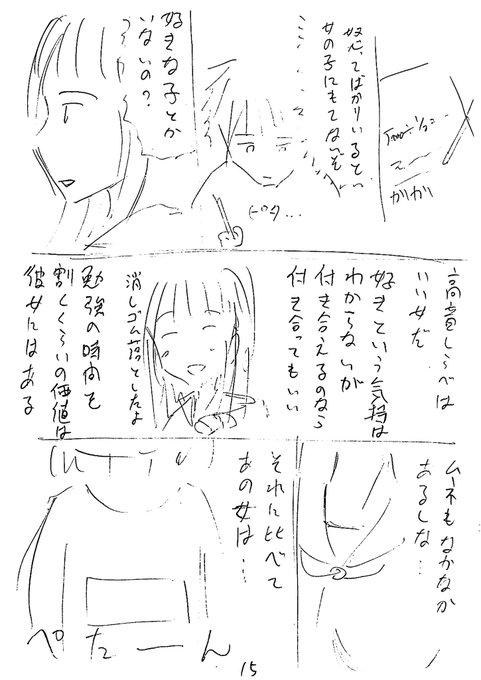 ガリガリ
怒ってばかりいるとい
女の子にもてないぞ
ピタ…
好きな子とか
いないの？
高音しらべは
いい女だ
好きという気持は
わからないが
付き合えるのなら
付き合ってもいい
消しゴム落としたよ
勉強の時間を
割くくらいの価値は
彼女にはある
ムーネもなかなか
あるしな…
それに比べて
あの女は…
ぺたーん
15